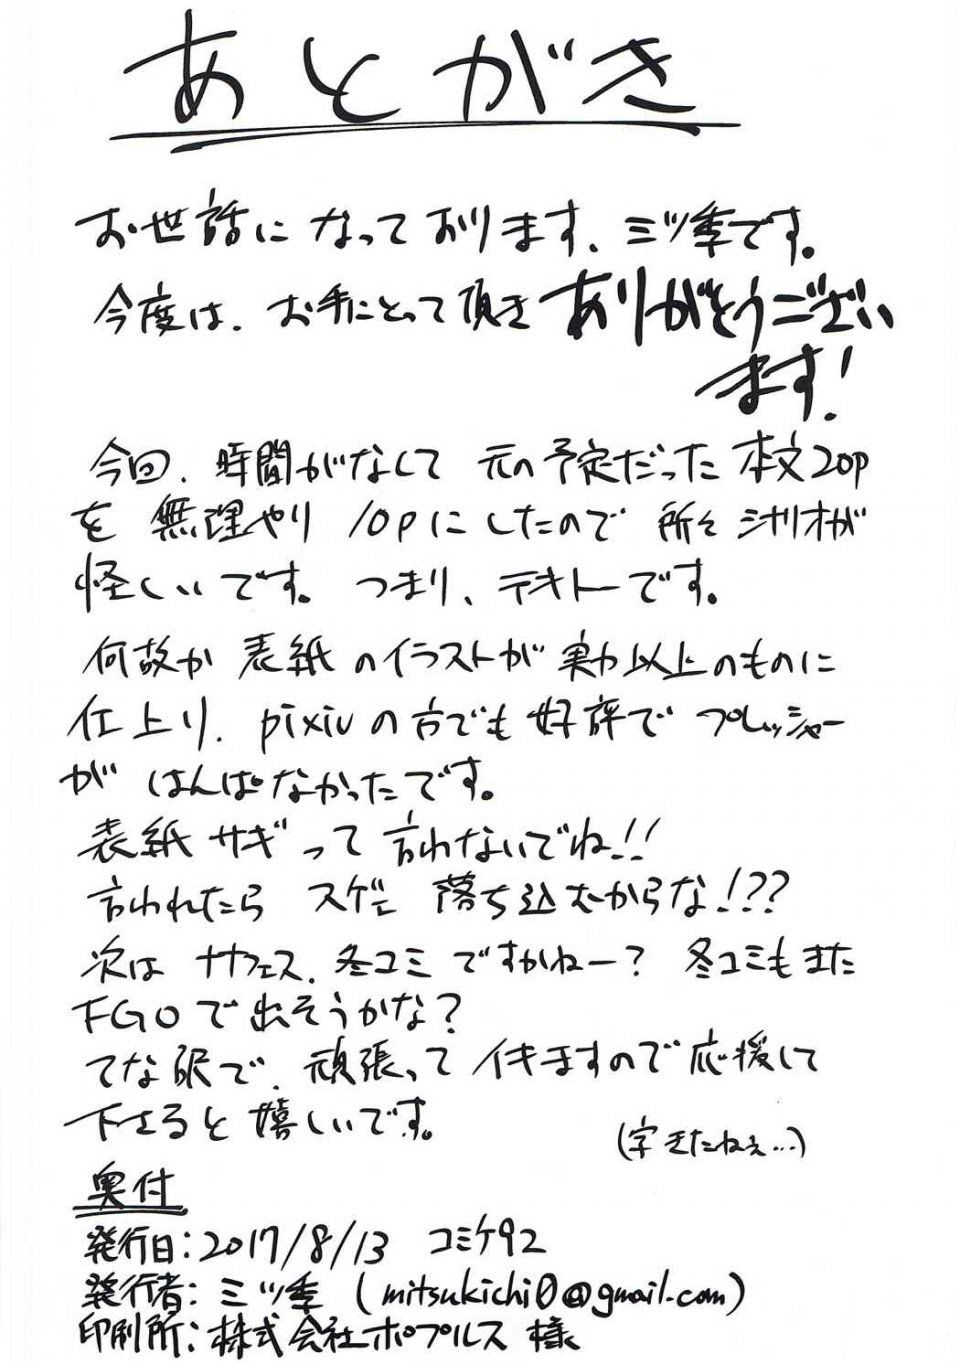 あとがき
お世話になっております、ミツ季です。
今度は、お手にとって頂きありがとうござい
ます!
今回、時間がなくて 元の予定だった 本文20p
を 無理やり 10pにしたので 所々 シナリオが
怪しいです。 つまり、テキトーです。
何故か 表紙のイラストが 実力以上のものに
仕上り、pixivの方でも 好評で プレッシャー
が はんぱなかったです。
表紙サギって 言わないでね!!
言われたら スゲェ 落ち込むからな!??
次は サンフェス、冬コミ ですかねー? 冬コミもまた
FGOで出そうかな?
てな訳で、頑張って イキますので応援して
下さると 嬉しいです。
(字きたねぇ…)
奥付
発行日:2017/8/13 コミケ92
発行者:ミツ季 (mitsukichi0@gmail.com)
印刷所:株式会社ポプルス 様